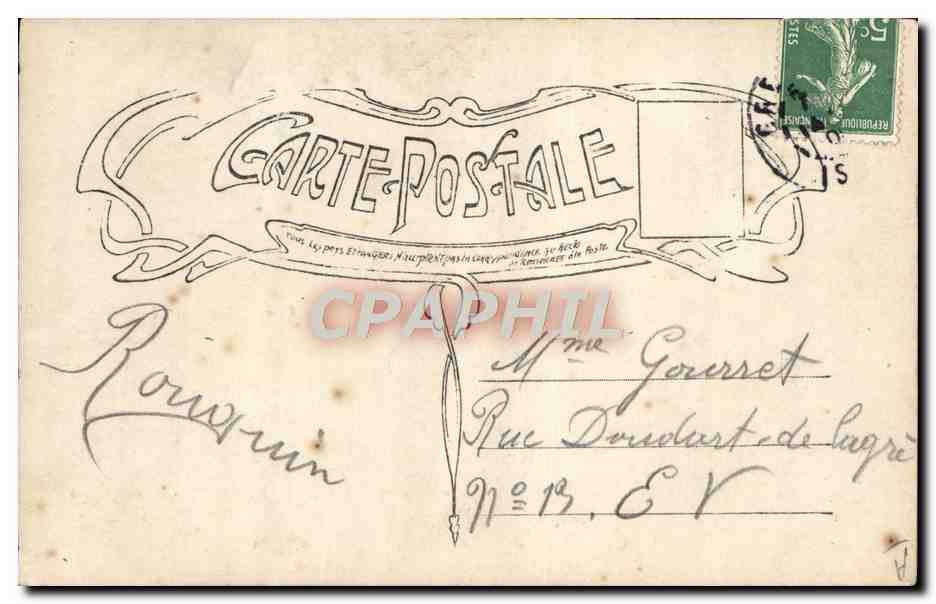 5c
POSTES
REPUBLIQUE FRANÇAISE
CARTE-POSTALE
Tous Les pays Etrangers N'acceptent pas la Correspondance au Recto
se Renseigner à la Poste
CPAPHIL
Mme Gourret
Rue Doudart-de lagré
No 13. E V
Rouquin